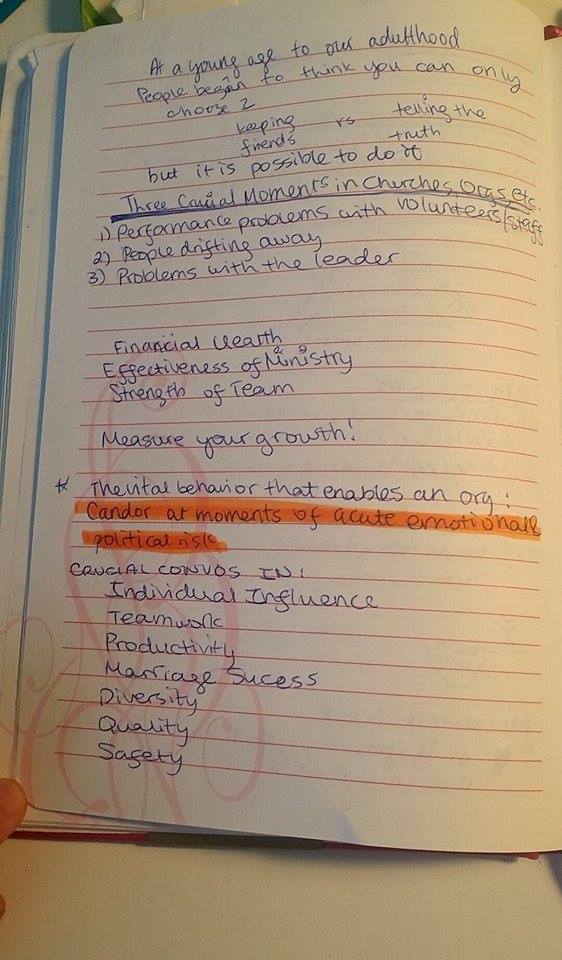 At a young age to our adulthood
People began to think you can only
choose 2
keeping friends vs telling the truth
but it is possible to do it
Three Crucial Moments in Churches, Orgs, Etc.
1) Performance problems with volunteers/staff
2) People drifting away
3) Problems with the leader
Financial Health
Effectiveness of Ministry
Strength of Team
Measure your growth!
* The vital behavior that enables an org:
Candor at moments of acute emotional &
political risk
CRUCIAL CONVOS IN:
Individual Influence
Teamwork
Productivity
Marriage Sucess
Diversity
Quality
Safety